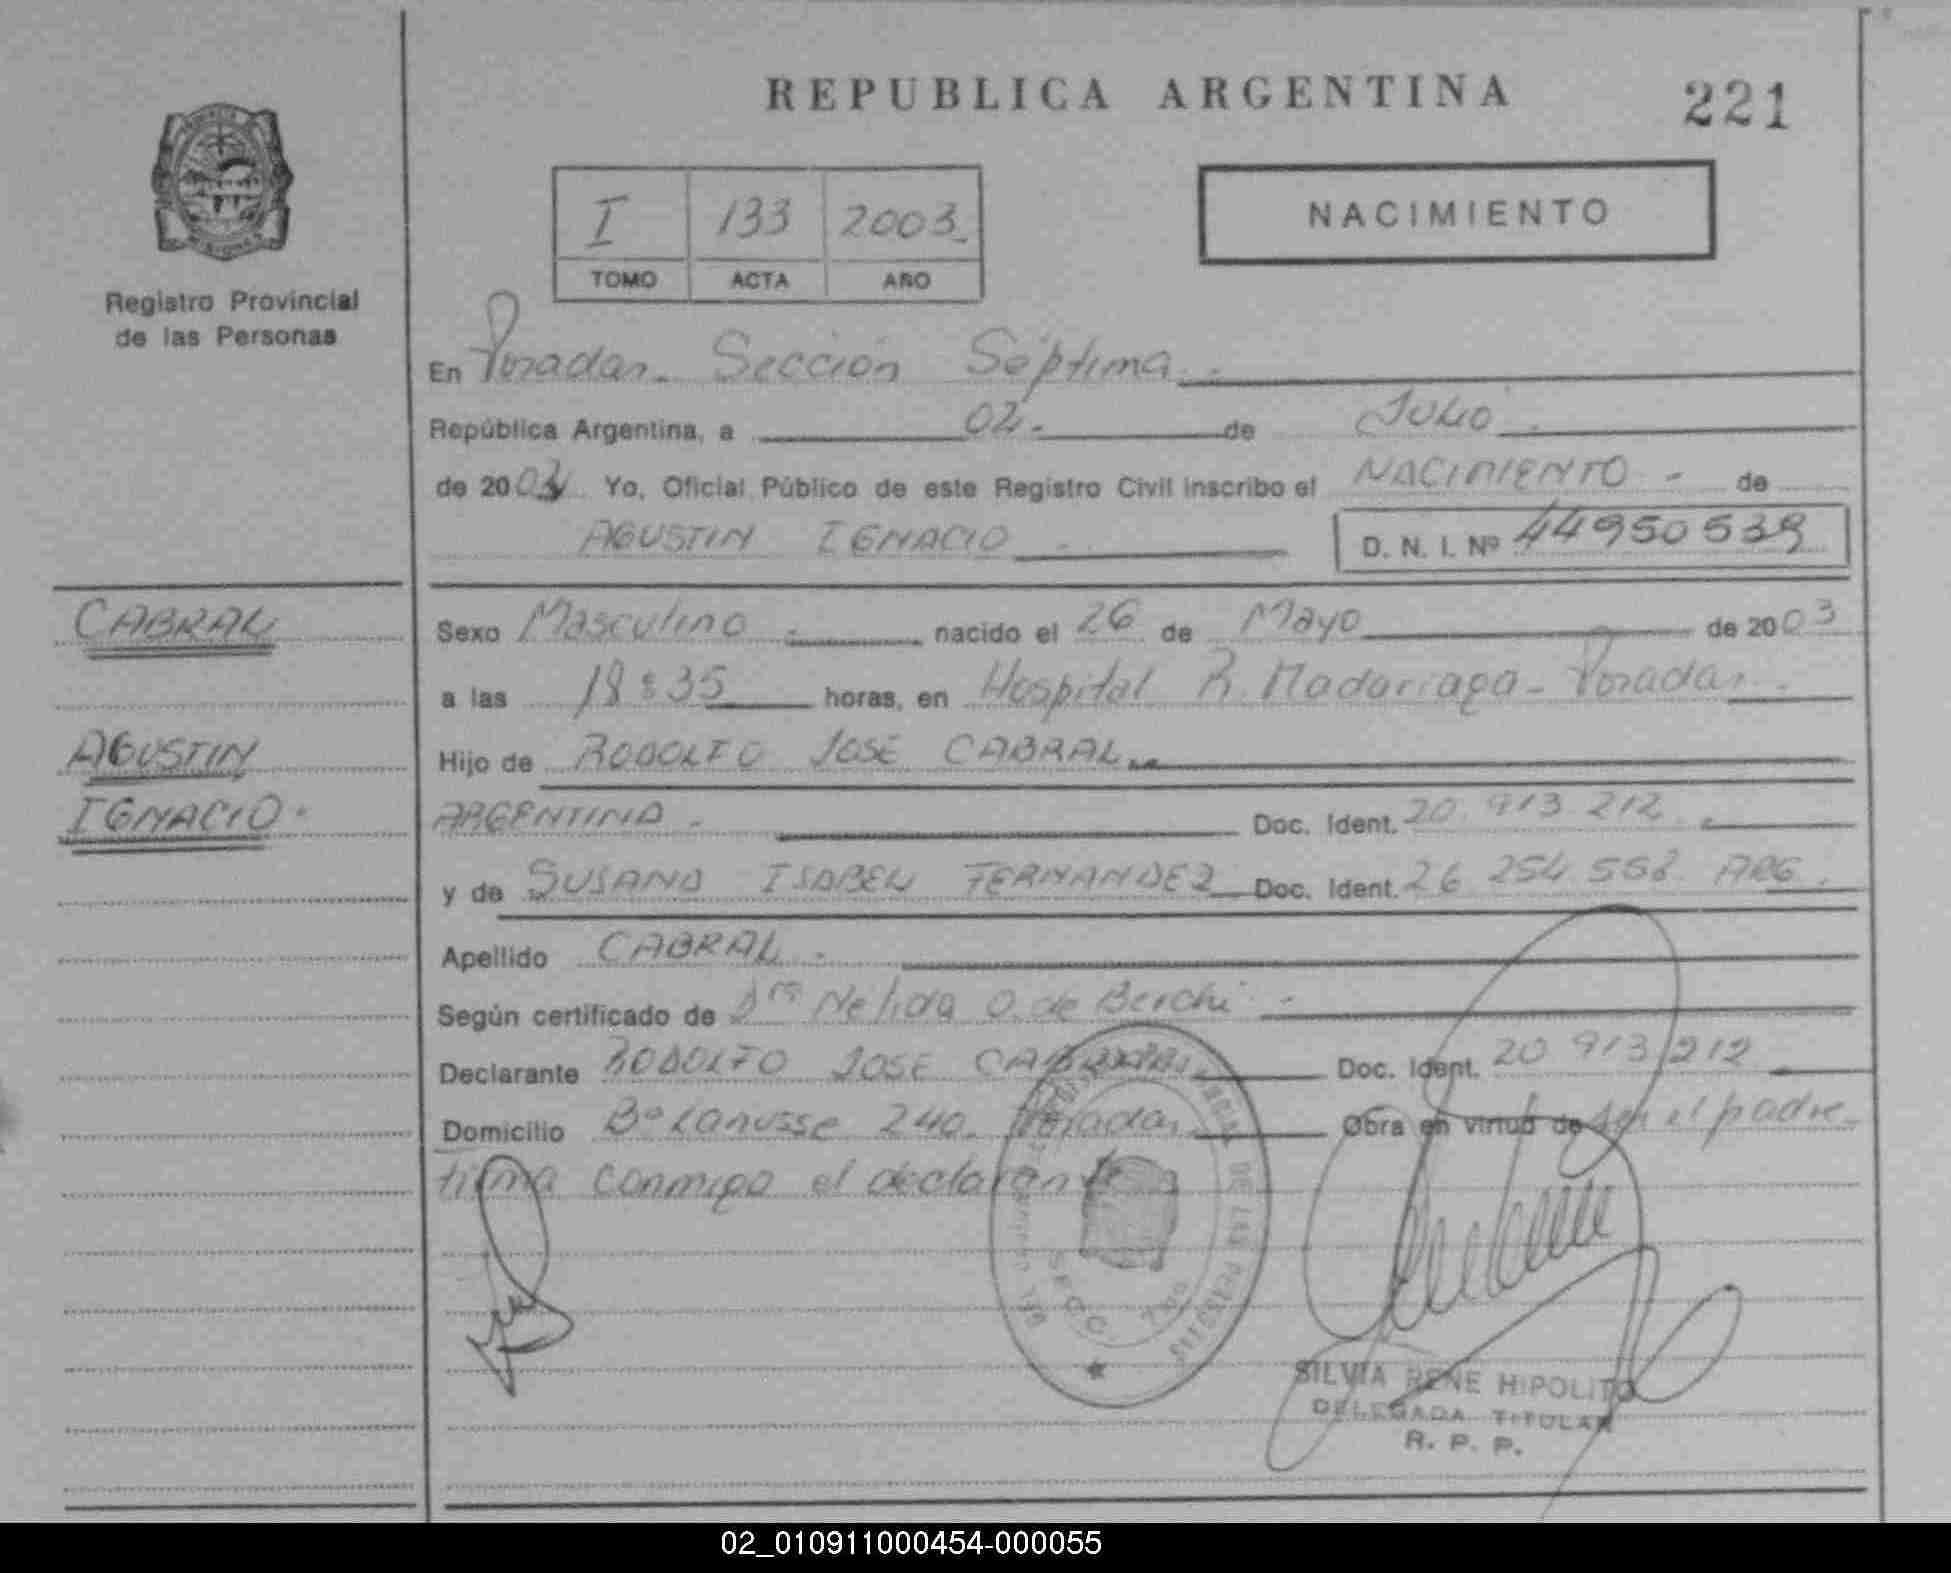 REPUBLICA ARGENTINA
221
I 133 2003
TOMO ACTA AÑO
NACIMIENTO
Registro Provincial
de las Personas
En Posadas. Sección Séptima
República Argentina, a 02 de Julio
de 2003 Yo, Oficial Público de este Registro Civil inscribo el NACIMIENTO - de
AGUSTIN IGNACIO D. N. I. Nº 44950539
CABRAL
AGUSTIN
IGNACIO
Sexo Masculino nacido el 26 de Mayo de 2003
a las 18:35 horas, en Hospital R. Madariaga - Posadas
Hijo de RODOLFO JOSE CABRAL
ARGENTINO Doc. Ident. 20 913 212
y de SUSANA ISABEL FERNANDEZ Doc. Ident. 26 254 558 ARG.
Apellido CABRAL
Según certificado de Dra Nelida O. de Berchi
Declarante RODOLFO JOSE CABRAL Doc. Ident. 20 913 212
Domicilio Bº Lanusse 240. Posadas Obra en virtud de ser el padre
firma conmigo el declarante
DE LAS PERSONAS
SECC. 7ma
SILVIA RENE HIPOLITO
DELEGADA TITULAR
R. P. P.
02_010911000454-000055